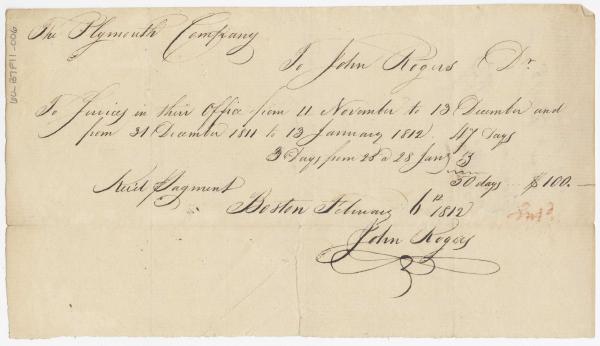 The Plymouth Company
To John Rogers Dr.
To Services in their Office from 11 November to 13 December and
from 31 December 1811 to 13 January 1812. 47 Days
3 Days from 25 a 28 Jany 3
50 days $100.—
Rec'd Payment
Boston February 6th 1812
John Rogers